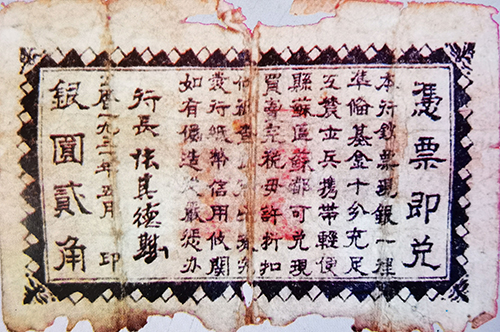 憑票即兑
本行鈔票現銀一律
準備基金十分充足
互贊士兵携帶輕便
縣蘇區蘇都可兑現
買賣完税毋許折扣
查究
發行紙幣信用攸關
如有偽造嚴懲办
行長 张其德
一九三年五月 印
銀圓貳角